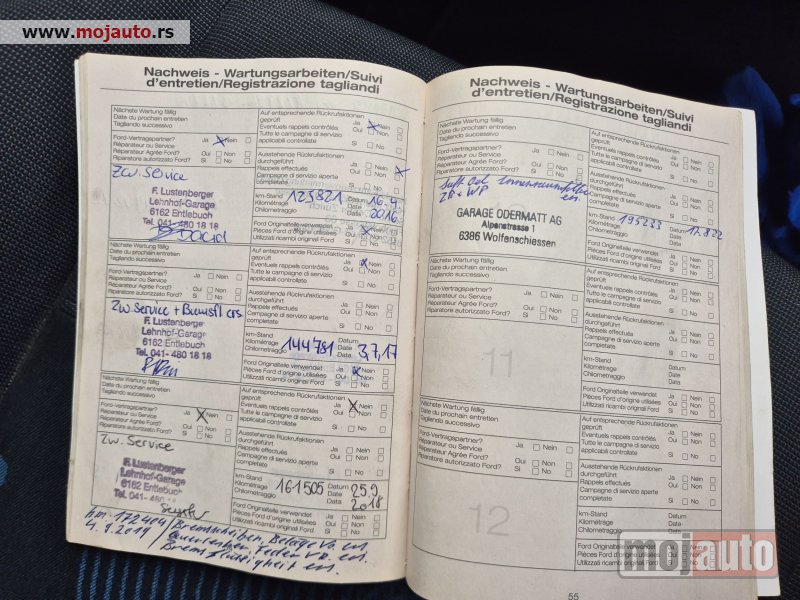 www.mojauto.rs
Nachweis - Wartungsarbeiten/Suivi
d'entretien/Registrazione tagliandi
Nächste Wartung fällig
Date du prochain entretien
Tagliando successivo
Ford-Vertragspartner? Ja Nein
Réparateur ou Service Oui Non
Réparateur Agrée Ford?
Riparatore autorizzato Ford? Si No
Auf entsprechende Rückrufaktionen
geprüft Ja Nein
Eventuels rappels contrôlés Oui Non
Tutte le campagne di servizio
applicabili controllate Si No
Ausstehende Rückrufaktionen
durchgeführt Ja Nein
Rappels effectués Oui Non
Campagne di servizio aperte
completate Si No
Zw. Service
F. Lustenberger
Lehnhof-Garage
6162 Entlebuch
Tel. 041- 480 18 18
km-Stand Datum
Kilométrage Date
Chilometraggio Data
123821 16.4
2016
Ford Originalteile verwendet Ja Nein
Pièces Ford d'origine utilisées Oui Non
Utilizzati ricambi originali Ford Si No
Nächste Wartung fällig
Date du prochain entretien
Tagliando successivo
Ford-Vertragspartner? Ja Nein
Réparateur ou Service Oui Non
Réparateur Agrée Ford?
Riparatore autorizzato Ford? Si No
Auf entsprechende Rückrufaktionen
geprüft Ja Nein
Eventuels rappels contrôlés Oui Non
Tutte le campagne di servizio
applicabili controllate Si No
Ausstehende Rückrufaktionen
durchgeführt Ja Nein
Rappels effectués Oui Non
Campagne di servizio aperte
completate Si No
Zw Service +
F. Lustenberger
Lehnhof-Garage
6162 Entlebuch
Tel. 041- 480 18 18
km-Stand Datum
Kilométrage Date
Chilometraggio Data
144781 3,7,17
Ford Originalteile verwendet Ja Nein
Pièces Ford d'origine utilisées Oui Non
Utilizzati ricambi originali Ford Si No
Nächste Wartung fällig
Date du prochain entretien
Tagliando successivo
Ford-Vertragspartner? Ja Nein
Réparateur ou Service Oui Non
Réparateur Agrée Ford?
Riparatore autorizzato Ford? Si No
Auf entsprechende Rückrufaktionen
geprüft Ja Nein
Eventuels rappels contrôlés Oui Non
Tutte le campagne di servizio
applicabili controllate Si No
Ausstehende Rückrufaktionen
durchgeführt Ja Nein
Rappels effectués Oui Non
Campagne di servizio aperte
completate Si No
Zw. Service
F. Lustenberger
Lehnhof-Garage
6162 Entlebuch
Tel. 041- 480 18 18
km-Stand Datum
Kilométrage Date
Chilometraggio Data
161505 25.9
2018
Ford Originalteile verwendet Ja Nein
Pièces Ford d'origine utilisées Oui Non
Utilizzati ricambi originali Ford Si No
km. 172404
4.9.2019
Bremsscheiben, Beläge Vo. en
Federn Vo. en.
Bremsflüssigkeit en.
Nachweis - Wartungsarbeiten/Suivi
d'entretien/Registrazione tagliandi
Nächste Wartung fällig
Date du prochain entretien
Tagliando successivo
Ford-Vertragspartner? Ja Nein
Réparateur ou Service Oui Non
Réparateur Agrée Ford?
Riparatore autorizzato Ford? Si No
Auf entsprechende Rückrufaktionen
geprüft Ja Nein
Eventuels rappels contrôlés Oui Non
Tutte le campagne di servizio
applicabili controllate Si No
Ausstehende Rückrufaktionen
durchgeführt Ja Nein
Rappels effectués Oui Non
Campagne di servizio aperte
completate Si No
ZR + WP
GARAGE ODERMATT AG
Alpenstrasse 1
6386 Wolfenschiessen
km-Stand Datum
Kilométrage Date
Chilometraggio Data
195233
Ford Originalteile verwendet Ja Nein
Pièces Ford d'origine utilisées Oui Non
Utilizzati ricambi originali Ford Si No
Nächste Wartung fällig
Date du prochain entretien
Tagliando successivo
Ford-Vertragspartner? Ja Nein
Réparateur ou Service Oui Non
Réparateur Agrée Ford?
Riparatore autorizzato Ford? Si No
Auf entsprechende Rückrufaktionen
geprüft Ja Nein
Eventuels rappels contrôlés Oui Non
Tutte le campagne di servizio
applicabili controllate Si No
Ausstehende Rückrufaktionen
durchgeführt Ja Nein
Rappels effectués Oui Non
Campagne di servizio aperte
completate Si No
11
km-Stand Datum
Kilométrage Date
Chilometraggio Data
Ford Originalteile verwendet Ja Nein
Pièces Ford d'origine utilisées Oui Non
Utilizzati ricambi originali Ford Si No
Nächste Wartung fällig
Date du prochain entretien
Tagliando successivo
Ford-Vertragspartner? Ja Nein
Réparateur ou Service Oui Non
Réparateur Agrée Ford?
Riparatore autorizzato Ford? Si No
Auf entsprechende Rückrufaktionen
geprüft Ja Nein
Eventuels rappels contrôlés Oui Non
Tutte le campagne di servizio
applicabili controllate Si No
Ausstehende Rückrufaktionen
durchgeführt Ja Nein
Rappels effectués Oui Non
Campagne di servizio aperte
completate Si No
12
km-Stand Datum
Kilométrage Date
Chilometraggio Data
Ford Originalteile verwendet
Pièces Ford d'origine utilisées
Utilizzati ricambi originali Ford
55
mojauto